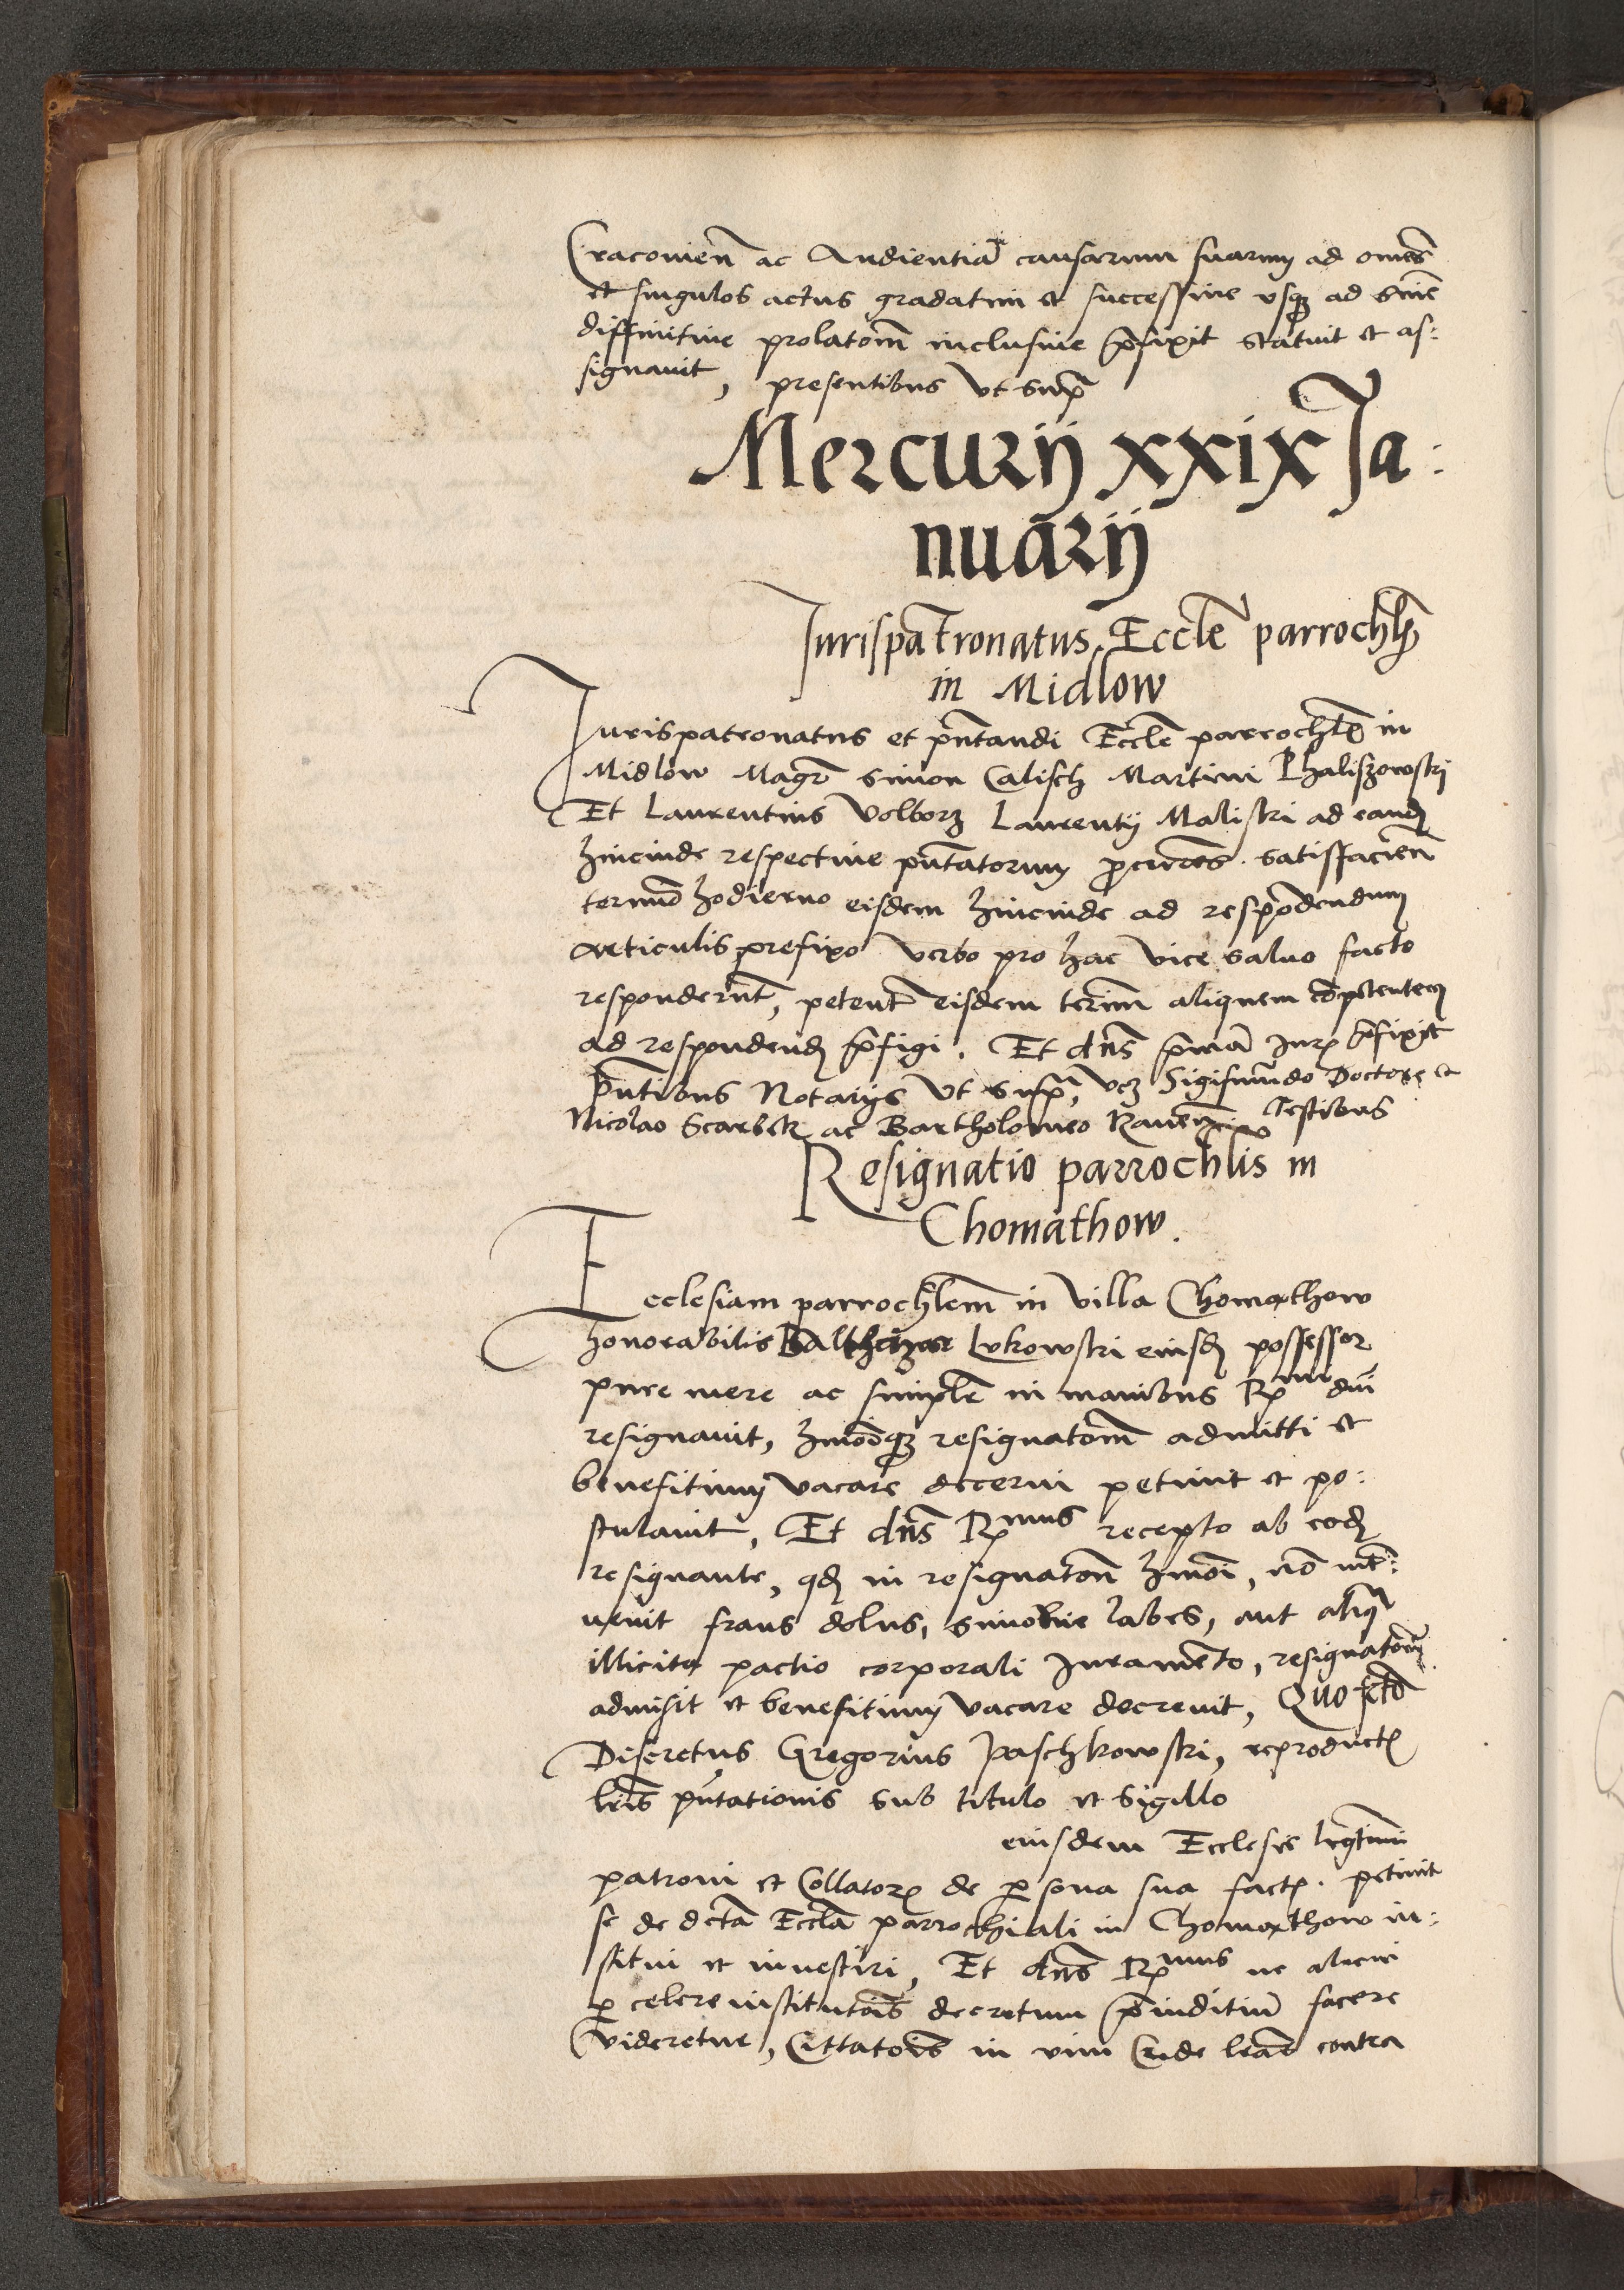 Cracovien̄ ac Audientiā causarum suarum ad omēs
et singulos actus gradatim et successiue vsqȝ ad sniē
diffinitiue prolatoēm inclusiue p̄fixit statuit et as:
signauit, presentibus vt sup̄
Mercurij xxix Ja:
nuarij
Jurispatronatus Eccłe parrochłȝ
in Midlow
Jurispatronatus et pn̄tandi Eccłe parrochłȝ in
Midlow Magr̄ Simon Calisch Martini Phaliszowski
Et Laurentius Volborz Laurentij Maliski ad eandē
hincinde respectiue pn̄tatorum procur̄es satisfacien̄
termīo hodierno eisdem hincinde ad respōdendum
articulis prefixo verbo pro hac vice saluo facto
respondernt̄, peteńt eisdem termī aliquem cōpetentem
ad respondendū p̄figi. Et dn̄s p̄mā Jurȝ p̄fixit
pn̄tibus Notarijs vt sup̄, vcȝ Sigismūdo Doctore et
Nicolao Scarbek ac Bartholomeo Rauen̄ Testibus
Resignatio parrochłis in
Chomathow.
Ecclesiam parrochłem in villa Chomathow
honorabilis Balthazar Lukowski eiusdē possessor
pure mere ac simplē in manibus Rmi dni
resignauit, hmōiqȝ resignatoēm admitti et
benefitium vacare decerni petiuit et po:
stulauit, Et dn̄s Rmus recepto ab eodē
resignante, qd in resignatōn hmōi, nō int̄:
uenit fraus dolus, simonie labes, aut aliqua
illicita pactio corporali Juramento, resignatoēm
admisit et benefitium vacare decreuit, Quo fcto
Discretus Gregorius Paschkowski, reproductȝ
lr̄is pn̄tationis sub titulo et sigillo
eiusdem Ecclesie legitimi
patroni et Collatorȝ de persona sua factȝ. petiuit
se de dcta Eccła parrochiali in Chomathow in:
stitui et inuestiri, Et dn̄s Rmus ne alicui
p celere institutōis decretum p̄iuditiū facere
videretur, Cittatōis in vim Cride lr̄as contra